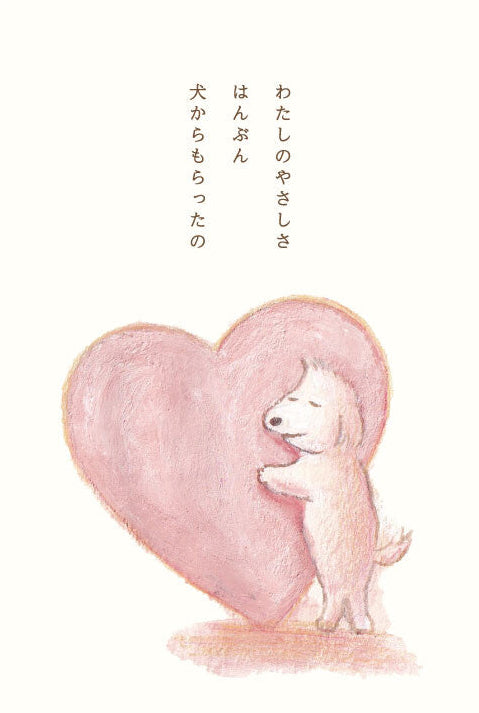 わたしのやさしさ
はんぶん
犬からもらったの